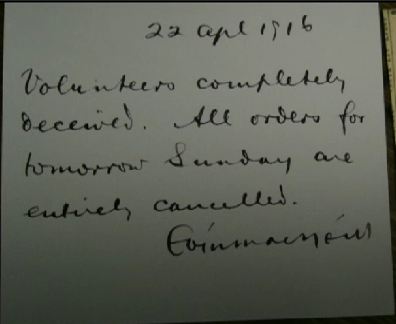 22 Apl 1916
Volunteers completely
deceived. All orders for
tomorrow Sunday are
entirely cancelled.
Eóinmacnéill